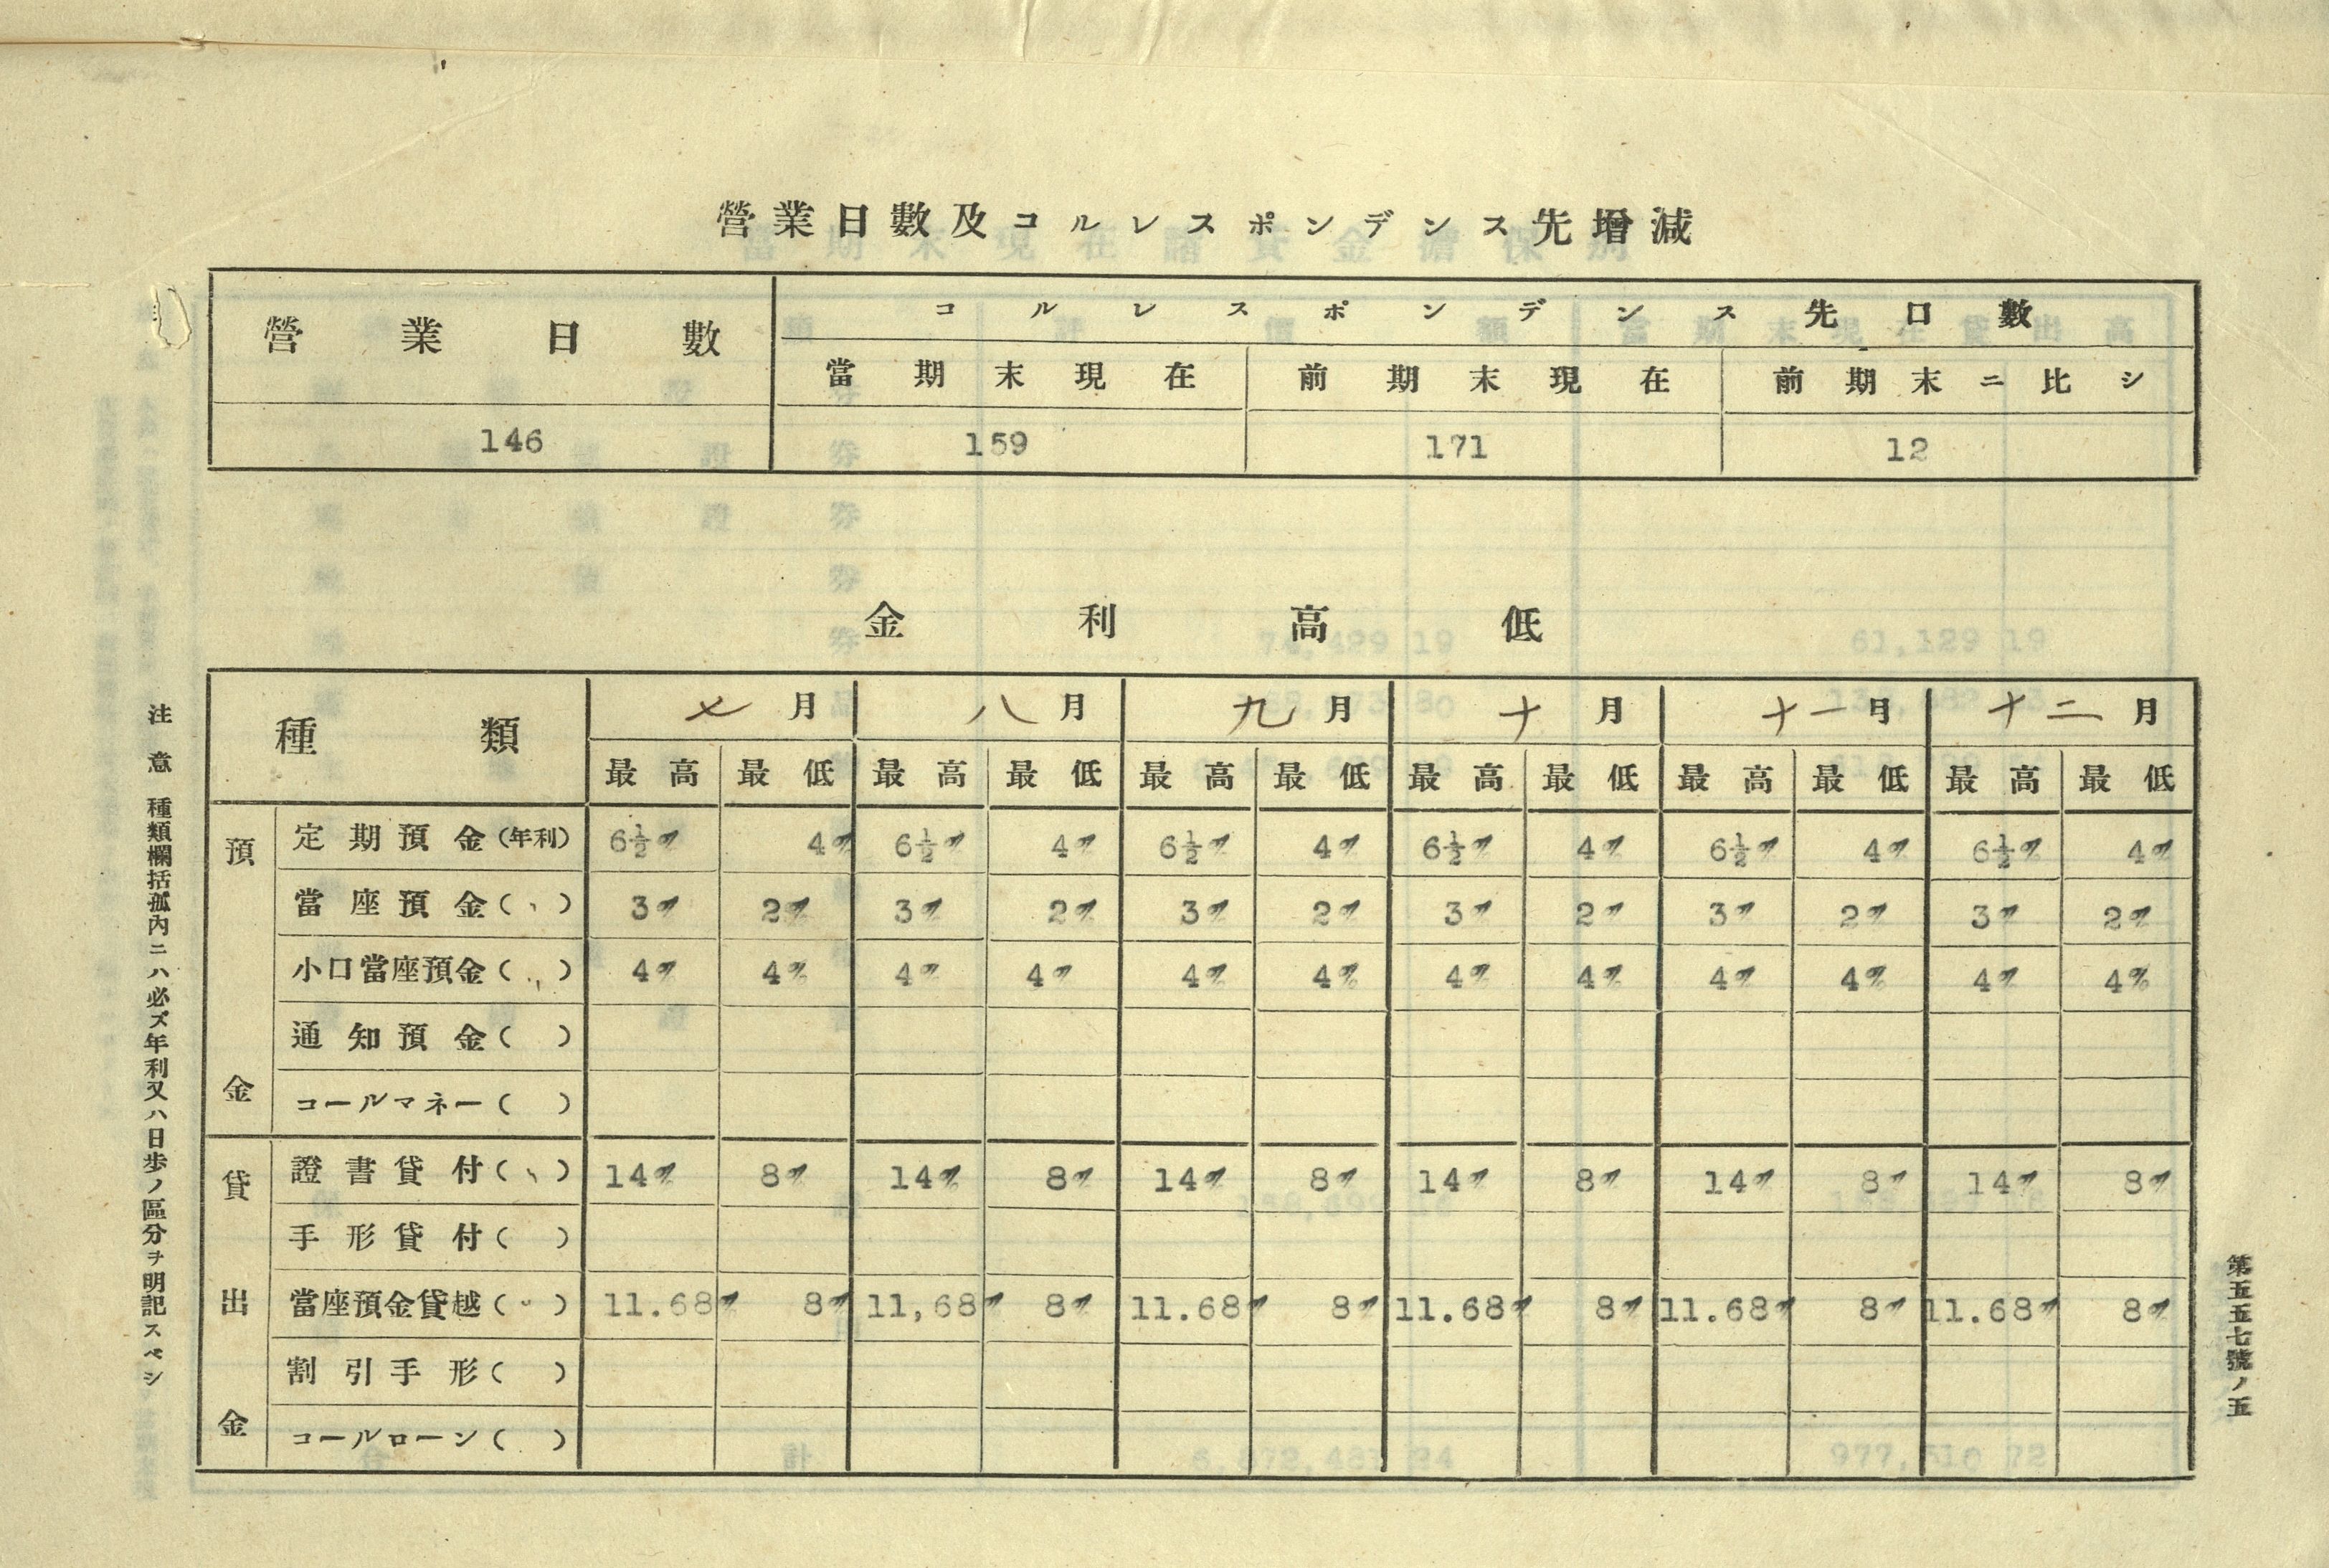 營業日數及コルレスポンデンス先增減
營業日數 コルレスポンデンス先口數
當期末現在 前期末現在 前期末ニ比シ
146 159 171 12
金利高低
種類 七月 八月 九月 十月 十一月 十二月
最高 最低 最高 最低 最高 最低 最高 最低 最高 最低 最高 最低
預金
定期預金(年利) 6½% 4% 6½% 4% 6½% 4% 6½% 4% 6½% 4% 6½% 4%
當座預金(〃) 3% 2% 3% 2% 3% 2% 3% 2% 3% 2% 3% 2%
小口當座預金(〃) 4% 4% 4% 4% 4% 4% 4% 4% 4% 4% 4% 4%
通知預金( )
コールマネー( )
貸出金
證書貸付(〃) 14% 8% 14% 8% 14% 8% 14% 8% 14% 8% 14% 8%
手形貸付( )
當座預金貸越(〃) 11.68% 8% 11,68% 8% 11.68% 8% 11.68% 8% 11.68% 8% 11.68% 8%
割引手形( )
コールローン( )
注意 種類欄括孤內ニハ必ズ年利又ハ日步ノ區分ヲ明記スベシ
第五五七號ノ五